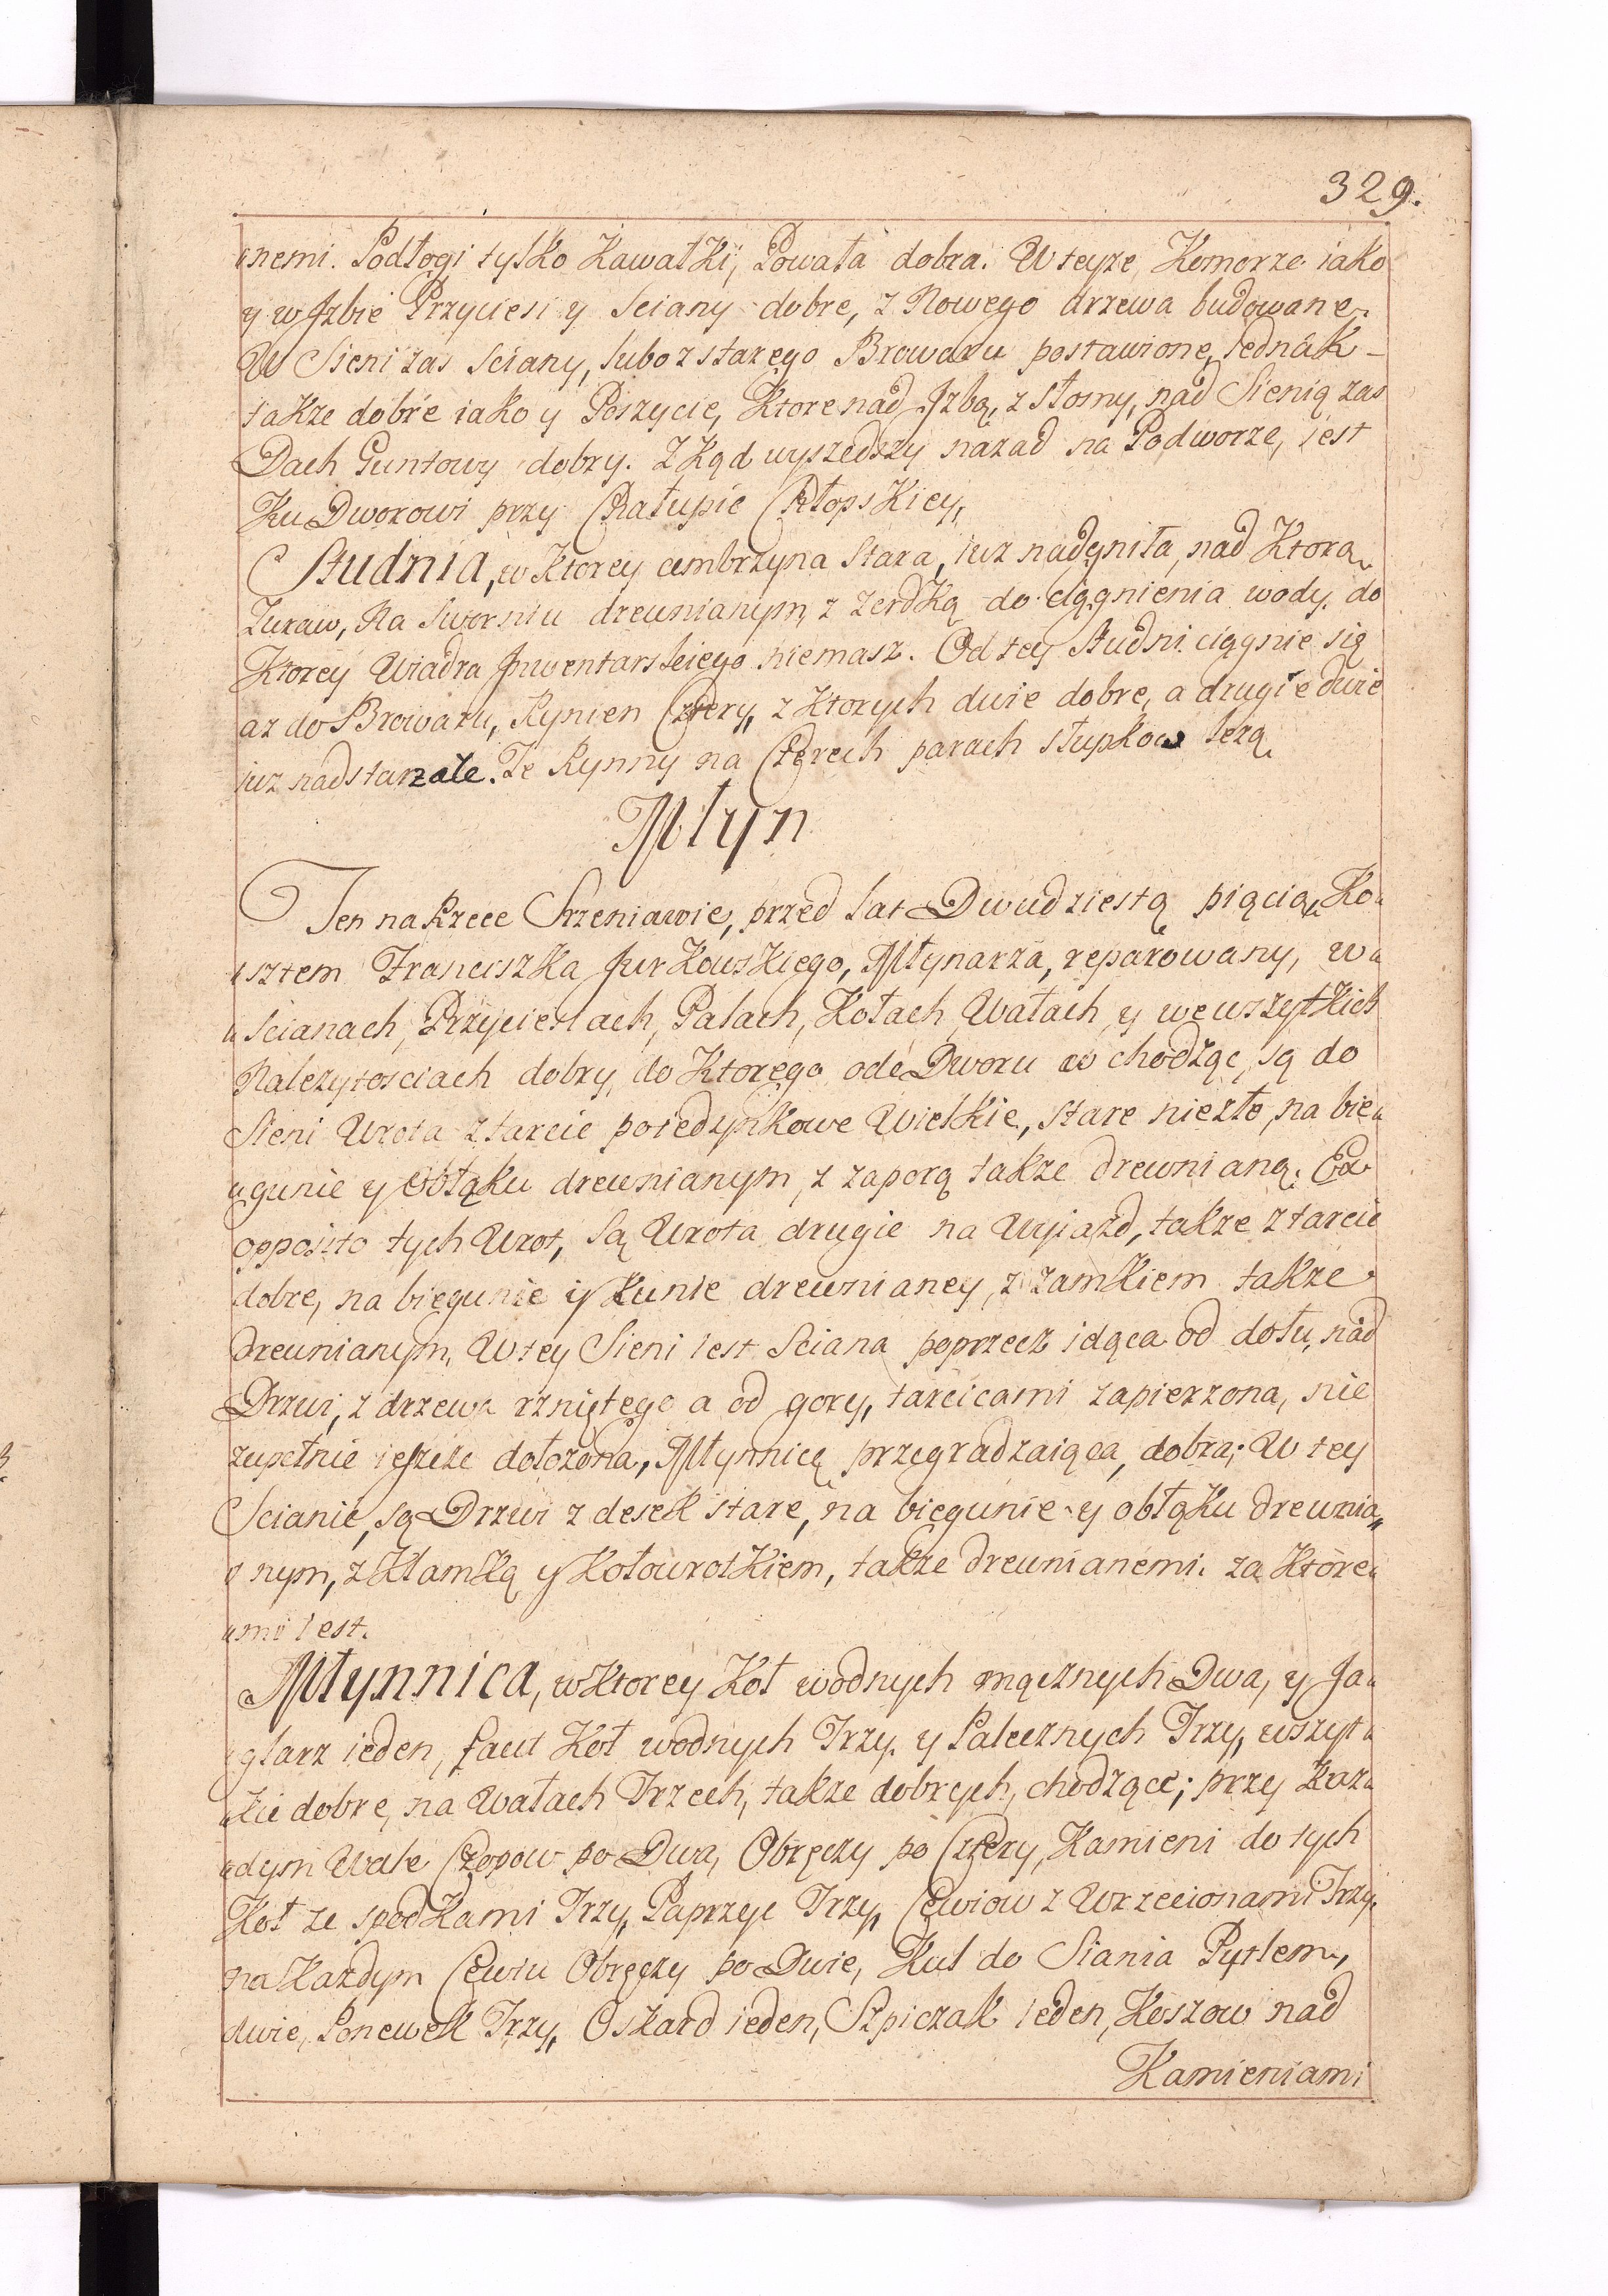 329.
nemi. Podłogi tylko Kawałki, Powała dobra. W teyże Komorze iako
y w Jzbie Przyciesi y Sciany dobre, z Nowego drzewa budowane.
W Sieni zas Sciany, lubo z starego Browaru postawione, Jednak
takze dobre iako y Poszycie, Ktore nad Jzbą, z Słomy, nad Sienią zas
Dach Guntowy dobry. Z Kąd wyszedszy nazad na Podworze, iest
Ku Dworowi przy Chałupie Chłopskiey,
Studnia, w Ktorey cembrzyna Stara, iuz nadgniła, nad Ktorą
Zuraw, Na Sworniu drewnianym, z zerdką do ciągnienia wody, do
Ktorey Wiadra Jnwentarskiego niemasz. Od tey Studni ciągnie się
az do Browaru, Rynien Cztery, z Ktorych dwie dobre, a drugie dwie
iuz nadstarzałe. Te Rynny na Czterech parach słupkow lezą
Młyn
Ten na Rzece Srzeniawie, przed lat Dwudziestą pięcią, Ko„
„sztem Franciszka Jurkowskiego, Młynarza, reparowany, w„
„Scianach, Przyciesiach, Palach, Kołach, Wałach, y we wszytkich
Nalezytosciach dobry, do Ktorego ode Dworu wchodząc, są do
Sieni Wrota z tarcic poiedynkowe Wielkie, stare niezłe, na bie„
„gunie y Obłąku drewnianym, z zaporą takze drewnianą. Ex
opposito tych Wrot, Są Wrota drugie na Wyiazd, takze z tarcic
dobre, na biegunie y Kunie drewnianey, z zamkiem takze
drewnianym, W tey Sieni iest Sciana poprzecz idąca od dołu, nad
Drzwi, z drzewa rzniętego a od gory, tarcicami zapierzona, nie
zupełnie ieszcze dołozona, Młynnicę przegradzaiąca, dobra; W tey
Scianie, są Drzwi z desek stare, na biegunie y obłąku drewnia„
„nym, z Klamką y Kołowrotkiem, takze drewnianemi. za Ktore„
„mi iest.
Młynnica, w Ktorey Kół wodnych mącznych Dwa, y Ja„
„glarz ieden, facit Kół wodnych Trzy. y Palecznych Trzy, wszyt„
„kie dobre, na Wałach Trzech, takze dobrych, chodzące; przy Kaz„
„dym Wale Czopow po Dwa, Obręczy po Cztery, Kamieni do tych
Kół ze spodkami Trzy, Paprzyc Trzy, Cewiow z Wrzecionami Trzy.
na Kazdym Cewiu Obręczy po Dwie, Kul do Siania Pytlem,
dwie, Ponewek Trzy, Oskard ieden, Szpiczak ieden, Koszow nad
Kamieniami